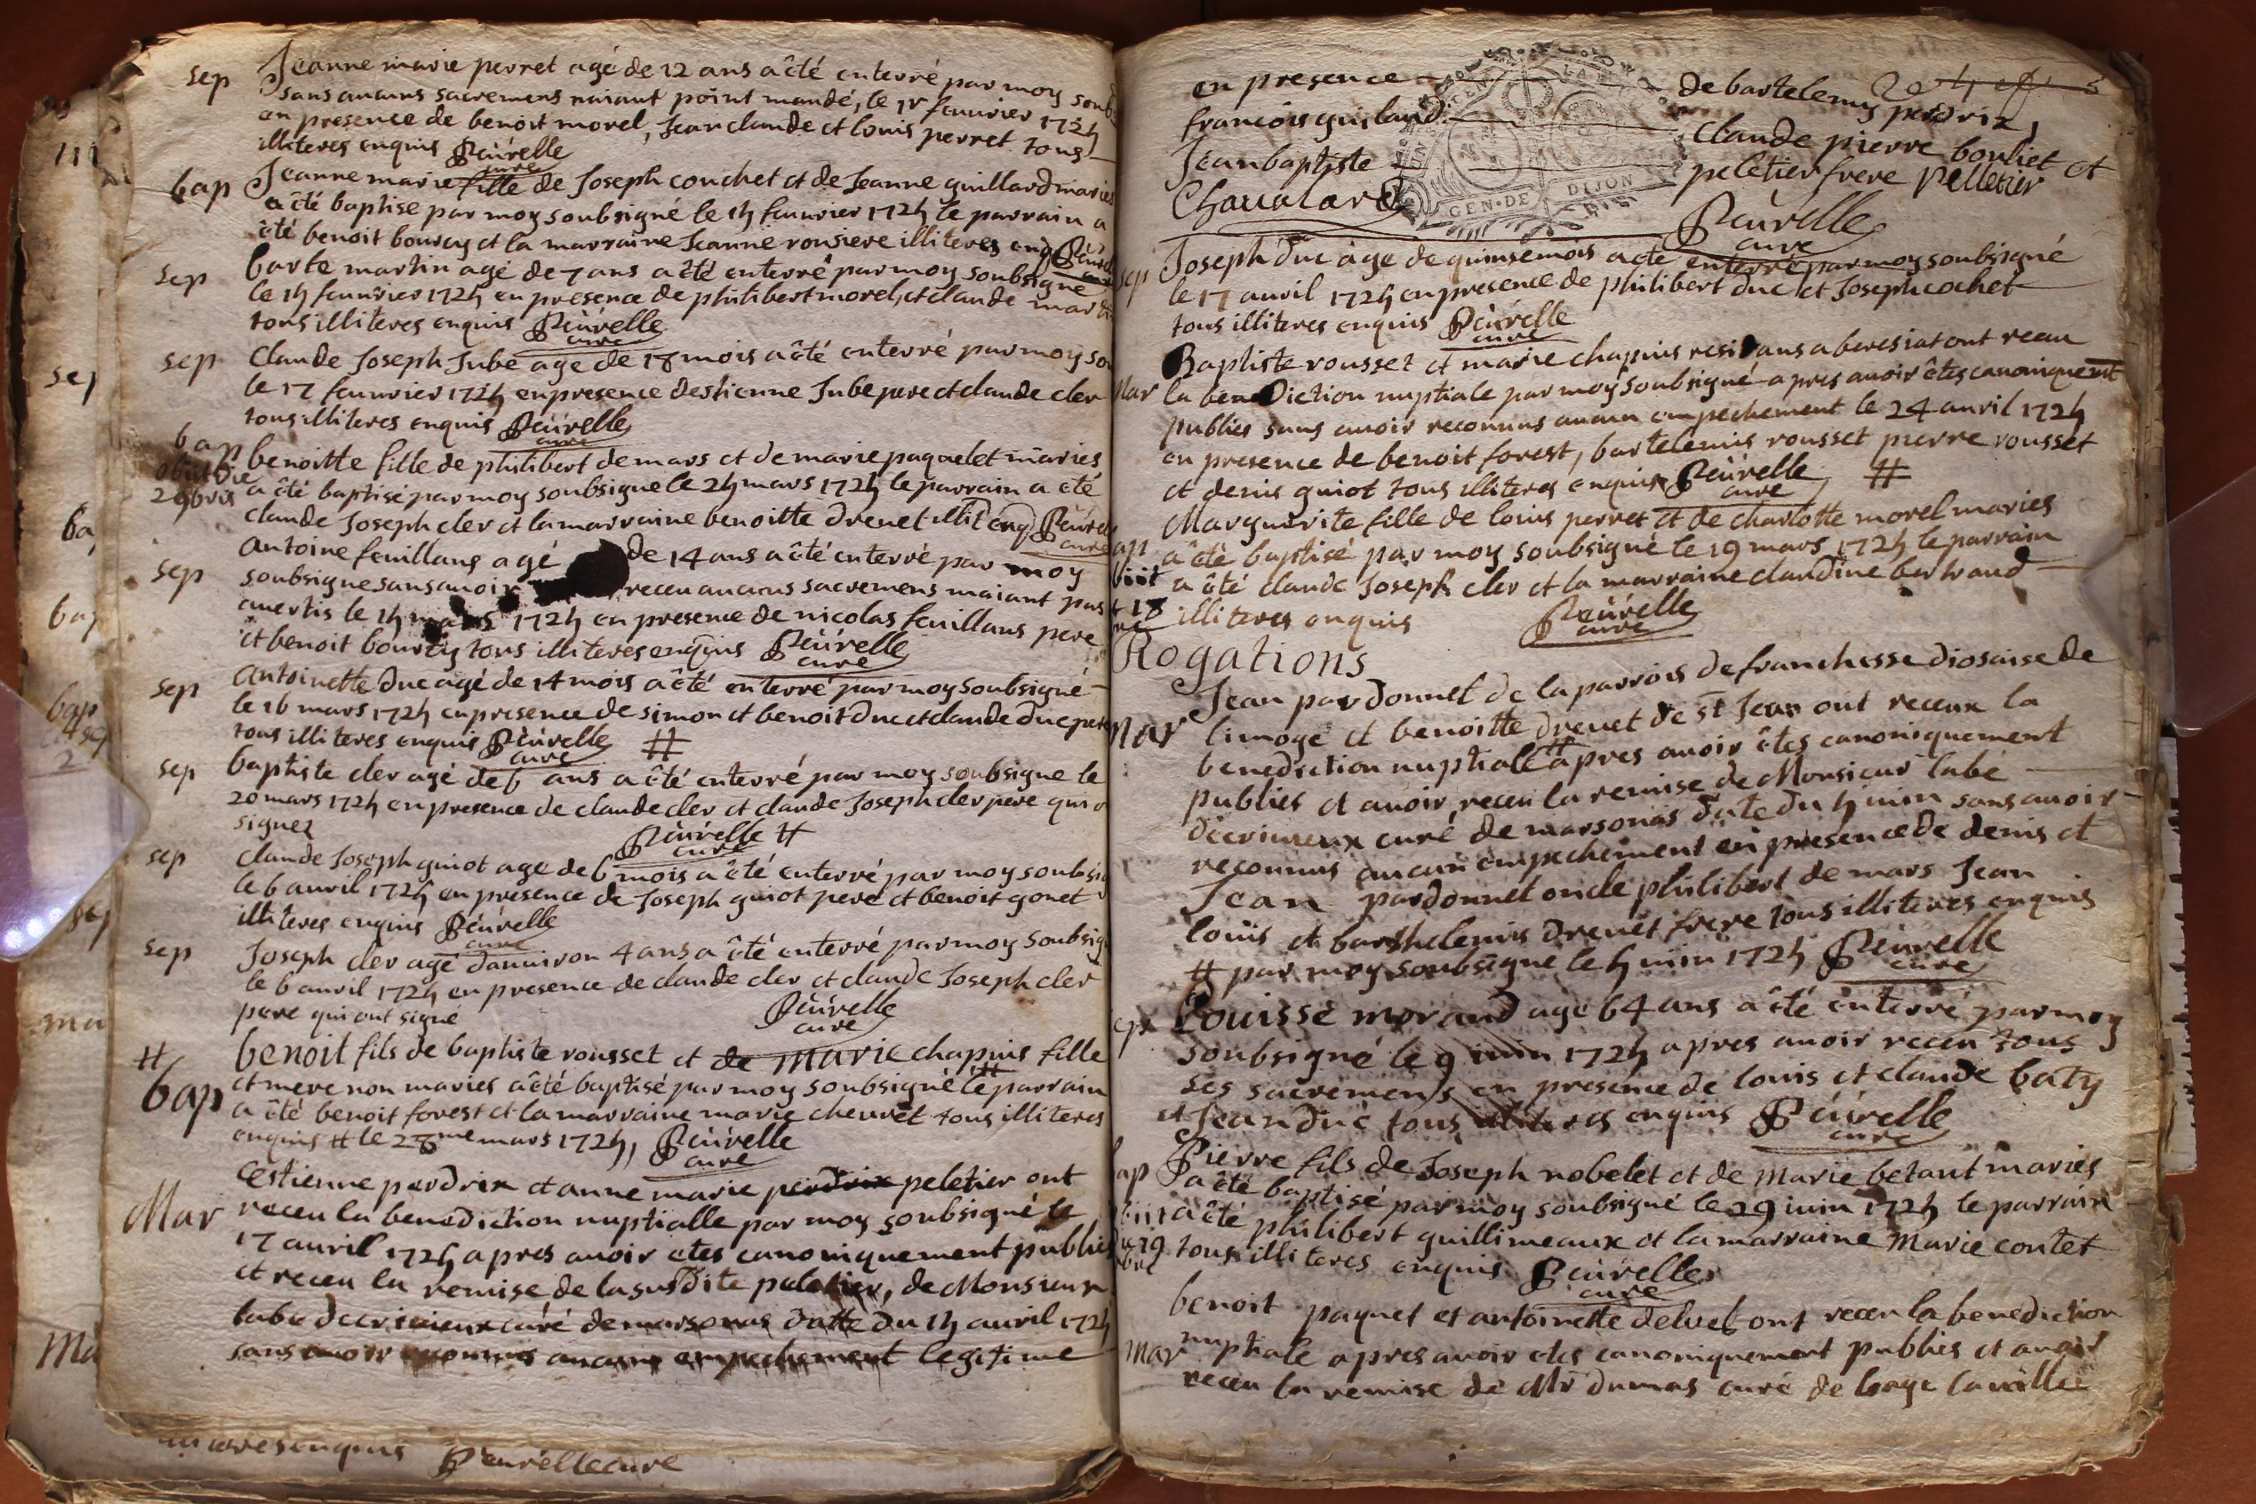 sep Jeanne marie perret agé de 12 ans a êté enterré par moy soub
sans aucuns sacremens naiant point mandé, le 1r feuvrier 1724
en presence de benoit morel, Jean claude et louis perret tous
illiteres enquis Peüvrelle
cure
bap Jeanne marie fille de Joseph couchet et de Jeanne guillard maries
a êté baptise par moy soubsigné le 14 feuvrier 1724 le parrain a
êté benoit boursy et la marraine Jeanne rousiere illiteres enq
sep barbe martin agé de 7 ans a êté enterré par moy soubsigné
le 14 feuvrier 1724 en presence de philibert morel, et claude
tous illiteres enquis Peüvrelle
cure
sep Claude Joseph Jube age de 18 mois a êté enterré par moy
le 17 feuvrier 1724 en presence destienne Jube pere et claude cler
tous illiteres enquis Peüvrelle
cure
bap
obiit die
29bris
benoitte fille de philibert demars et de marie paquelet maries
a êté baptisé par moy soubsigne le 24 mars 1724 le parrain a êté
claude Joseph cler et la marraine benoitte drevet illit enq
cure
sep antoine feuillans agé de 14 ans a êté enterré par moy
soubsigne sans avoir receu aucuns sacremens naiant pas
avertis le 14 mars 1724 en presence de nicolas feuillans pere
et benoit boursy tous illiteres enquis Peüvrelle
cure
sep antoinette duc agé de 14 mois a êté enterré par moy soubsigné
le 16 mars 1724 en presence de simon et benoit duc et claude duc pere
tous illiteres enquis Peüvrelle #
cure
sep baptiste cler agé de 6 ans a êté enterré par moy soubsigne le
20 mars 1724 en presence de claude cler et claude Joseph cler pere qui
signez
Peüvrelle #
cure
sep claude Joseph guiot age de 6 mois a êté enterré par moy
le 6 avril 1724 en presence de Joseph guiot pere et benoit gonet
illiteres enquis Peüvrelle
cure
sep Joseph cler agé danviron 4 ans a êté enterré par moy
le 6 avril 1724 en presence de claude cler et claude Joseph cler
pere qui ont signé Peüvrelle
cure
#
bap benoit fils de baptiste rousset et de marie chapuis fille
et mere non maries a êté baptisé par moy soubsigné # le parrain
a êté benoit forest et la marraine marie chevret tous illiteres
enquis # le 28me mars 1724, Peüvrelle
cure
Mar Estienne perdrix et anne marie perdrix peletier ont
receu la benediction nuptialle par moy soubsigné le
17 avril 1724 apres avoir etes canoniquement publies
et receu la remise de la susdite peletier, de Monsieur
curé de marsonas datte du 14 avril 1724
sans avoir reconnus aucune empechement legitime
enquis Peüvrelle cure
en presence de bartelemy perdrix,
francois guiland Claude pierre bouliet et
Jean baptiste peletier frere Pelletier
Chavalard
GEN·DE DIJON
Peüvrelle
cure
sep Joseph duc age de quinse mois a eté enterré par moy soubsigné
le 17 avril 1724 en presence de philibert duc et Joseph cochet
tous illiteres enquis Peüvrelle
cure
Mar Baptiste rousset et marie chapuis residans a beresiat ont receu
la benediction nuptiale par moy soubsigné apres avoir êtes canoniquement
publies sans avoir reconnus aucun empechement le 24 avril 1724
en presence de benoit forest, bartelemis rousset pierre rousset
et denis guiot tous illiteres enquis Peüvrelle #
cure
Marguerite fille de louis perret et de charlotte morel maries
a êté baptisé par moy soubsigné le 19 mars 1724 le parrain
a êté claude Joseph cler et la marraine claudine bertraud
illiteres enquis Peüvrelle
cure
Rogations
Mar Jean pardonnet de la parrois de franchesse diosaise de
limoge et benoitte drevet de st Jean ont receux la
benediction nuptiale # apres avoir êtes canoniquement
publies et avoir receu la remise de Monsieur labé
decrivieux curé de marsonas date du 4 juin sans avoir
reconnus aucun empechement en presence de denis et
Jean pardonnet oncle philibert de mars Jean
louis et barthelemis drevet frere tous illiteres enquis
# par moy soubsigne le 4 juin 1724 Peüvrelle
cure
Louisse morand age 64 ans a êté enterré par moy
soubsigné le 9 juin 1724 apres avoir receu tous
ses sacremens en presence de louis et claude baty
et Jean duc tous illiteres enquis Peüvrelle
cure
bap Pierre fils de Joseph nobelet et de Marie betant maries
a êté baptisé par moy soubsigné le 29 juin 1724 le parrain
a êté philibert guillimeaux et la marraine Marie contet
tous illiteres enquis Peüvrelle
cure
Mar benoit paquet et antoinette delvet ont receu la benediction
nuptiale apres avoir etes canoniquement publies et avoir
receu la remise de Mr dumas curé de bage la ville